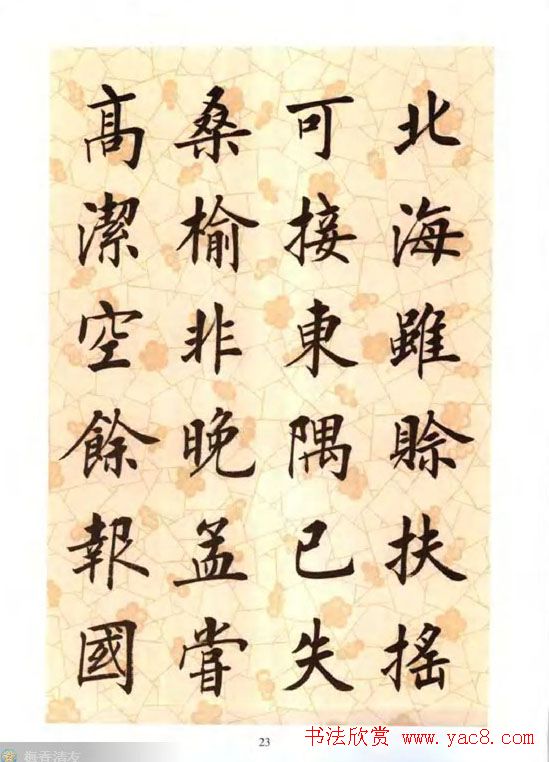 北海雖賒扶搖
可接東隅已失
桑榆非晚孟嘗
髙潔空餘報國
23
书法欣赏 www.yac8.com
梅香清友